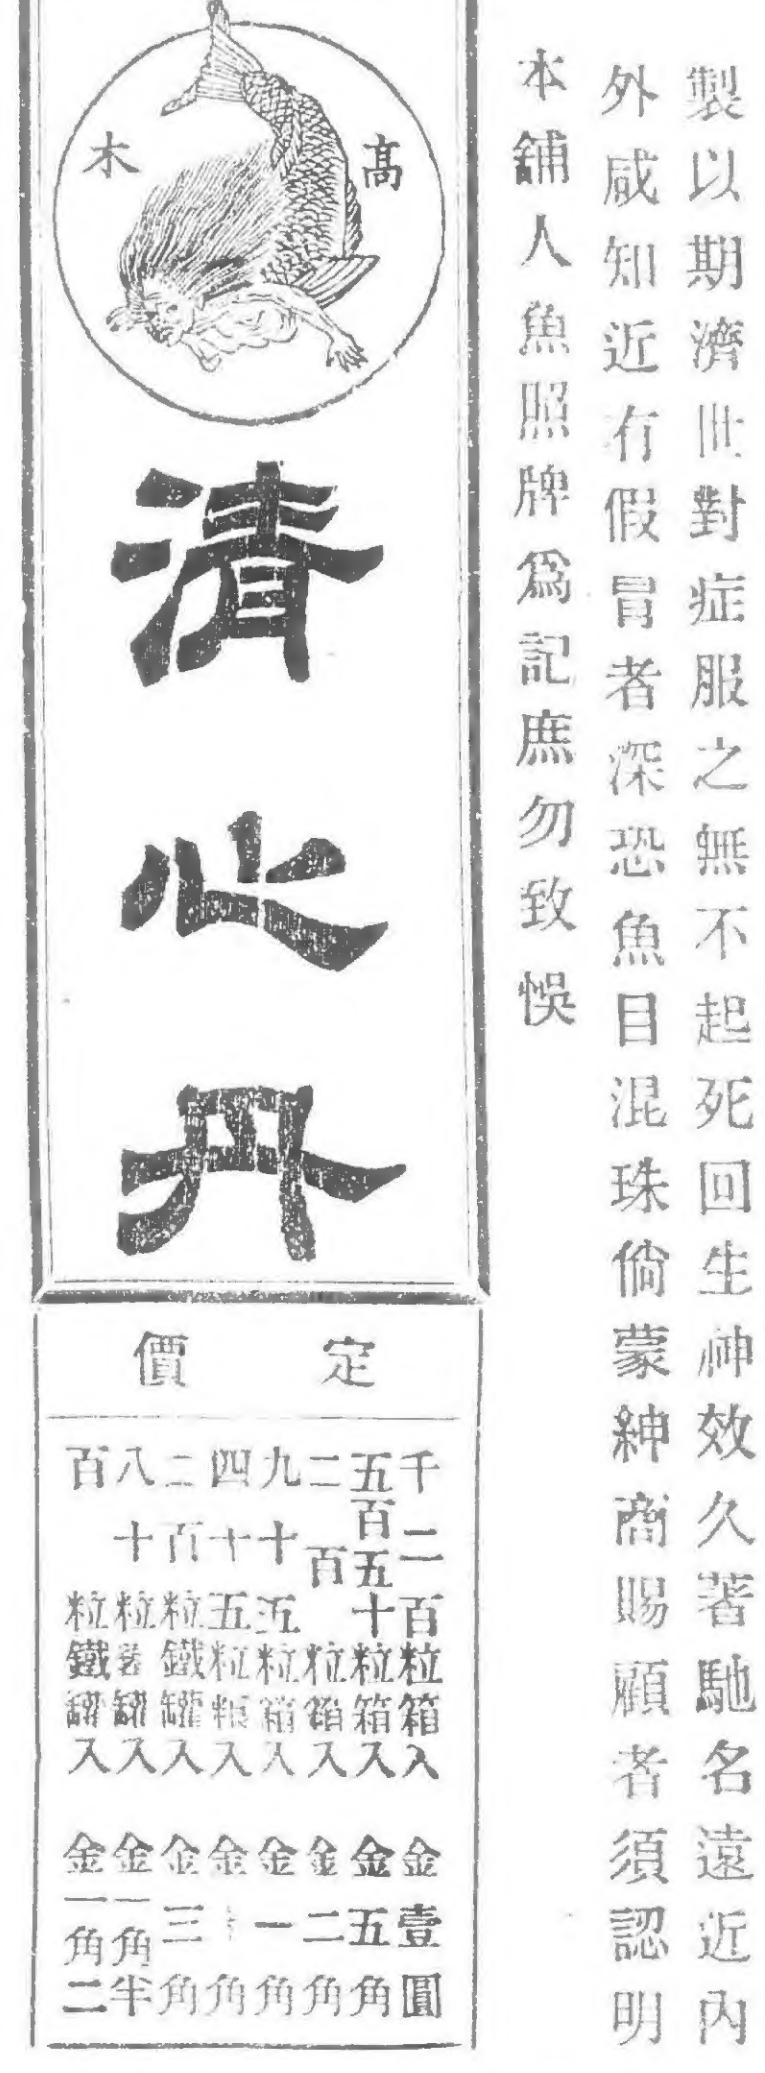 製以期濟世對症服之無不起死回生神效久著馳名遠近內
外咸知近有假冒者深恐魚目混珠倘蒙紳商賜顧者須認明
本舖人魚照牌爲記庶勿致悞
高木
清心丹
定價
千二百粒箱入 金壹圓
五百五十粒箱入 金五角
二百粒箱入 金二角
九十五粒箱入 金一角
四十五粒入 金角
二百粒鐵罐入 金三角
八十粒罐入 金一角半
百粒鐵罐入 金一角二